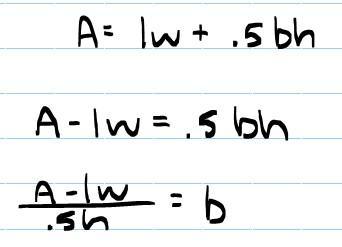 A = lw + .5bh
A - lw = .5bh
A - lw / .5h = b